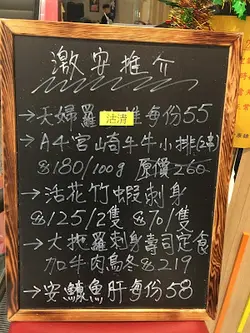 激安推介
→天婦羅 沽清 每份55
→A4宮崎牛牛小排(2串)
@180/100g 原價260
→活花竹蝦刺身
@125/2隻 @70/1隻
→大拖羅刺身壽司定食
加牛肉烏冬@219
→安鱇魚肝每份58